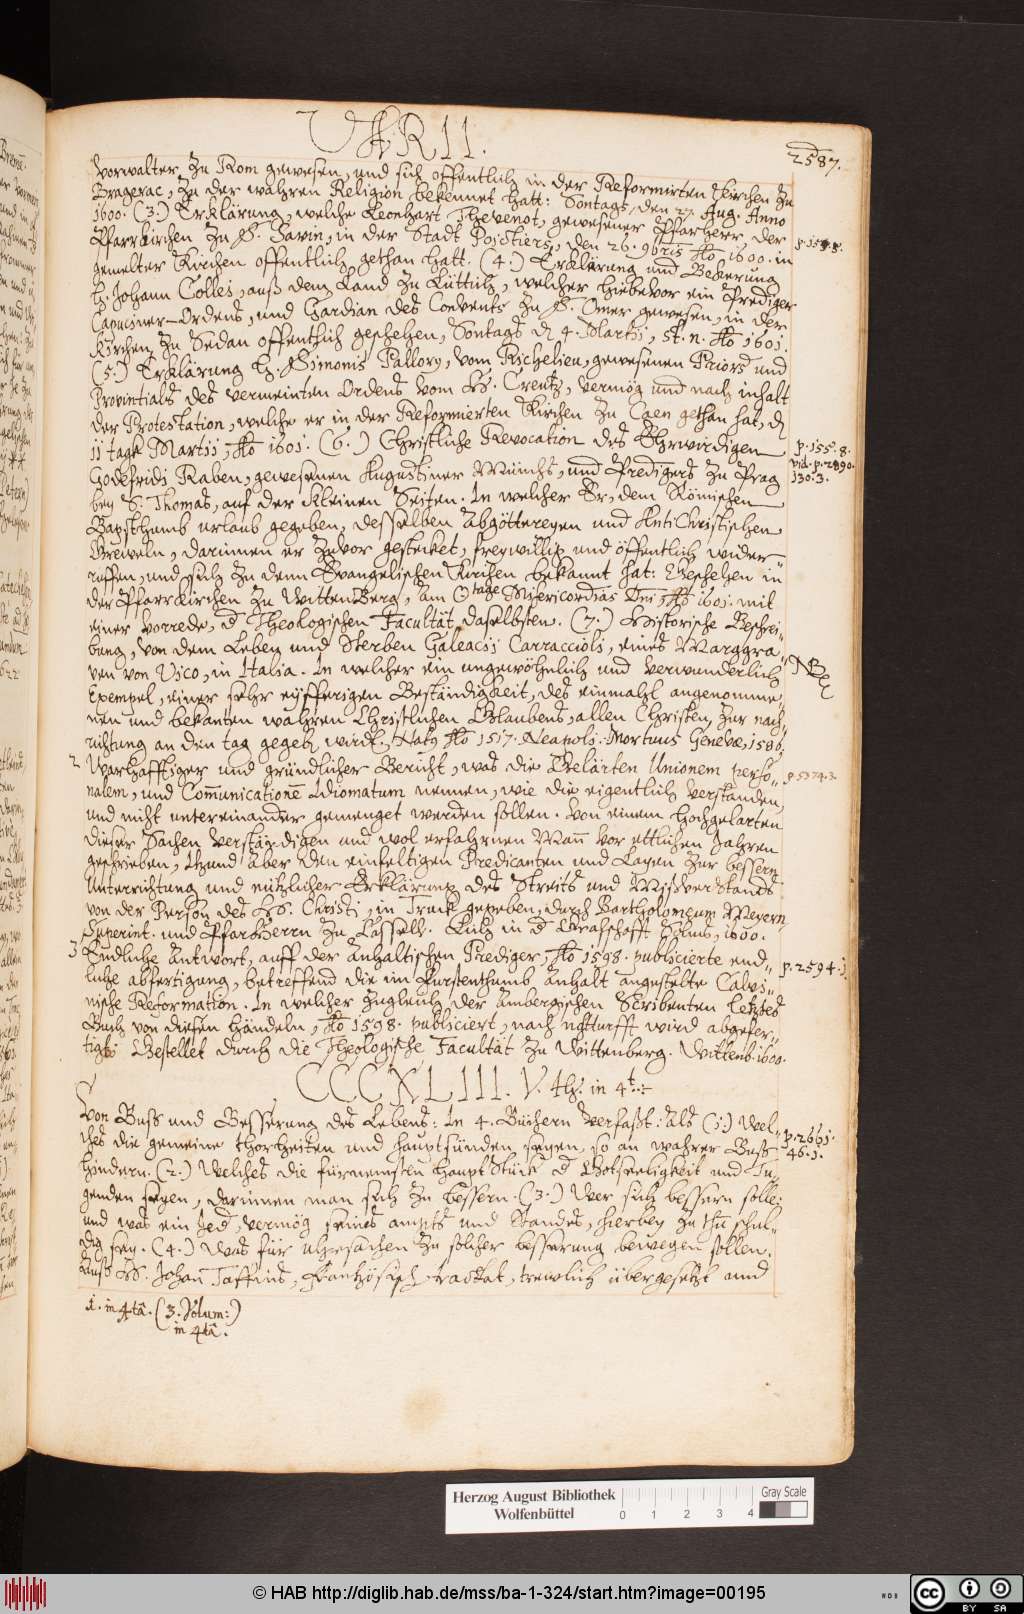 VARII.
2587.
Vorwalter zu Rom gewesen, und sich offentlich in der Reformirten Kirchen zu
Bragerac, zu der wahren Religion bekennet hatt: Sontags, den 27. Aug. Anno
1600. (3.) Erklärung, welche Leonhart Thevenot, gewesener Pfarherr, der
Pfarrkirchen zu S. Savin, in der Stadt Poictiers, den 26. 9bris Ao 1600. in
gemelter Kirchen offentlich gethan hatt. (4.) Erklärung und Bekerung
H. Johann Colles, auß dem Land zu Lüttich, welcher hiebevor ein Prediger
Capuciner-Ordens, und Gardian des Convents zu S. Omer gewesen, in der
Kirchen zu Sedan offentlich geschehen, Sontags d 4. Martii, st. n. Ao 1601.
(5.) Erklärung H. Simonis Pallory, vom Richelieu, gewesenen Priors und
Provintials des vermeinten Ordens vom H. Creutz, vermög und nach inhalt
der Protestation, welche er in der Reformierten Kirchen zu Caen gethan hat, d
11 tagk Martii, Ao 1601. (6.) Christliche Revocation des Ehrwirdigen
Godefridi Raben, gewesenen Augustiner Münchs, und Predigers zu Prag
bey S. Thomas, auf der Kleinen Seiten. In welcher Er, dem Römischen
Bapsthumb urlaub gegeben, desselben Abgöttereyen und AntiChristischen
Greweln, darinnen er zuvor gestecket, freywillig und öffentlich wider-
ruffen, und sich zu denn Evangelischen Kirchen bekannt hat: Geschehen in
der Pfarrkirchen zu WittenBerg, am ☉tage Misericordias Dni, Ao 1601. mit
einer Vorrede, d Theologischen Facultät daselbsten. (7.) Historische Beschrei-
bung, von dem Leben und Sterben Galeacii Carraccioli, eines Marggra-
ven von Vico, in Italia. In welcher ein ungewöhnlich und verwunderlich
Exempel, einer sehr eyfferigen Beständigkeit, des einmahl angenomme-
nen und bekanten wahren Christlichen Glaubens, allen Christen, zur nach-
richtung an den tag gegeb wird. Nat9 Ao 1517. Neapoli. Mortuus Genevæ, 1586.
2 Warhafftiger und gründlicher Bericht, was die Gelärten Unionem perso-
nalem, und Com̄unicationē Idiomatum nennen, wie die eigentlich verstanden,
und nicht untereinander gemenget werden sollen. Von einem hochgelarten
dieser Sachen verständigen und wol erfahrnen Man̄ vor ettlichen Jahren
geschrieben, Itzund aber den einfeltigen Predicanten und Layen zur bessern
Unterrichtung und nützlicher Erklärung des Streits und Mißverstands
von der Person des H. Christi, in Truck gegeben, durch Bartholomæum Meyern
Superint. und PfarHerrn zu Cassell. Lich in d Graffschafft Solms, 1600.
3 Endliche Antwort, auff der Anhaltischen Prediger, Ao 1598. publicierte end-
liche abfertigung, betreffend die im Fürstenthumb Anhalt angestelte Calvi-
nische Reformation. In welcher zugleich der Ambergischen Scribenten letztes
Buch von diesen Händeln, Ao 1598. publiciert, nach notturfft wird abgefer-
tigt: Gestellet durch die Theologische Facultät zu Wittenberg. Wittenb. 1600.
CCCXLIII. V. th. in 4t.
Von Buß und Besserung des Lebens: In 4. Büchern verfaßt: Als (1.) Wel-
ches die gemeine thorheiten und hauptsünden seyen, so an wahrer Buß
hindern. (2.) Welches die fürnemsten Haupt Stück d Gotseeligkeit und Tu-
genden seyen, darinnen man sich zu bessern. (3.) Wer sich bessern solle:
und was ein Jed, vermög seines ampts und Standes, hierbey zu thu schul-
dig sey. (4.) Was für uhrsachen zu solcher besserung bewegen sollen.
Auß H. Johan Taffins, Frantzösisch Tractat, trewlich übergesetzt und
1. in 4tâ. (3. Volum:)
in 4tâ.
p. 155.8.
vid. p. 2890.
130.3.
p. 5574.3.
p. 2594.1
p. 2661.
46.1.
Herzog August Bibliothek
Wolfenbüttel
0 1 2 3 4
Gray Scale
© HAB http://diglib.hab.de/mss/ba-1-324/start.htm?image=00195
cc BY SA